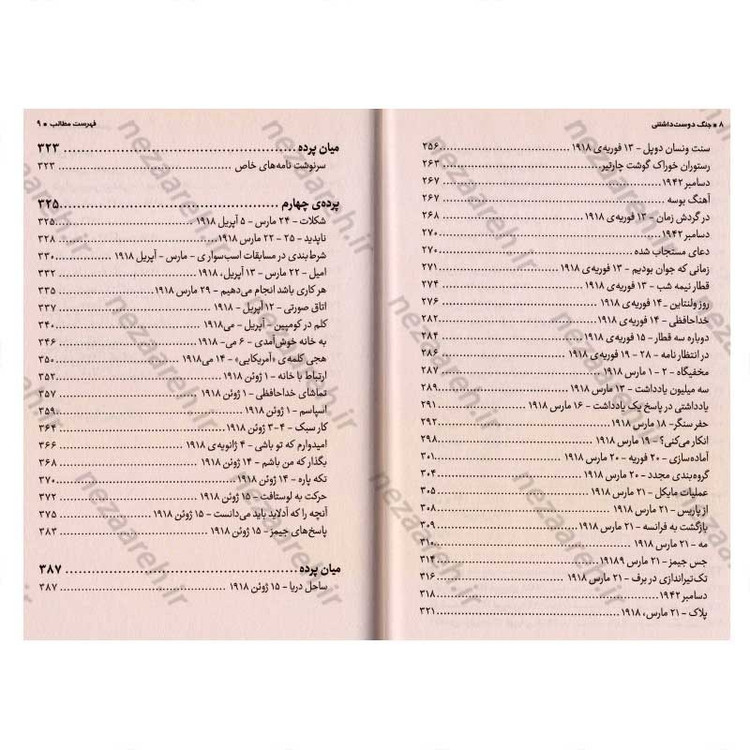 ۸ ■ جنگ دوست‌داشتنی
سنت ونسان دوپل – ۱۳ فوریه‌ی ۱۹۱۸ ........ ۲۵۶
رستوران خوراک گوشت چارتیر ........ ۲۶۳
دسامبر ۱۹۴۲ ........ ۲۶۷
آهنگ بوسه ........ ۲۶۷
در گردش زمان – ۱۳ فوریه‌ی ۱۹۱۸ ........ ۲۶۸
دسامبر ۱۹۴۲ ........ ۲۷۰
دعای مستجاب شده ........ ۲۷۰
زمانی که جوان بودیم – ۱۳ فوریه‌ی ۱۹۱۸ ........ ۲۷۱
قطار نیمه شب – ۱۳ فوریه‌ی ۱۹۱۸ ........ ۲۷۴
روز ولنتاین – ۱۴ فوریه‌ی ۱۹۱۸ ........ ۲۷۶
خداحافظی – ۱۴ فوریه‌ی ۱۹۱۸ ........ ۲۸۲
دوباره سه قطار – ۱۵ فوریه‌ی ۱۹۱۸ ........ ۲۸۴
در انتظار نامه – ۲۸ – ۱۹ فوریه‌ی ۱۹۱۸ ........ ۲۸۶
مخفیگاه – ۲ – ۱ مارس ۱۹۱۸ ........ ۲۸۷
سه میلیون یادداشت – ۱۳ مارس ۱۹۱۸ ........ ۲۸۹
یادداشتی در پاسخ یک یادداشت – ۱۶ مارس ۱۹۱۸ ........ ۲۹۱
حفر سنگر – ۱۸ مارس ۱۹۱۸ ........ ۲۹۲
انکار می‌کنی؟ – ۱۹ مارس ۱۹۱۸ ........ ۲۹۸
آماده‌سازی – ۲۰ فوریه – ۲۰ مارس ۱۹۱۸ ........ ۳۰۱
گروه‌بندی مجدد – ۲۰ مارس ۱۹۱۸ ........ ۳۰۴
عملیات مایکل – ۲۱ مارس ۱۹۱۸ ........ ۳۰۵
از پاریس – ۲۱ مارس ۱۹۱۸ ........ ۳۰۸
بازگشت به فرانسه – ۲۱ مارس ۱۹۱۸ ........ ۳۰۹
مه – ۲۱ مارس ۱۹۱۸ ........ ۳۱۰
جس جیمز – ۲۱ مارس ۱۹۱۸۹ ........ ۳۱۴
تک‌تیراندازی در برف – ۲۱ مارس ۱۹۱۸ ........ ۳۱۶
دسامبر ۱۹۴۲ ........ ۳۱۸
پلاک – ۲۱ مارس، ۱۹۱۸ ........ ۳۲۱
فهرست مطالب ■ ۹
میان پرده ........ ۳۲۳
سرنوشت نامه‌های خاص ........ ۳۲۳
پرده‌ی چهارم ........ ۳۲۵
شکلات – ۲۴ مارس – ۵ آپریل ۱۹۱۸ ........ ۳۲۵
ناپدید – ۲۵ – ۲۲ مارس ۱۹۱۸ ........ ۳۲۸
شرط‌بندی در مسابقات اسب‌سواری – مارس – آپریل ۱۹۱۸ ........ ۳۳۰
امیل – ۲۲ مارس – ۱۳ آپریل، ۱۹۱۸ ........ ۳۳۲
هر کاری باشد انجام می‌دهیم – ۲۹ مارس ۱۹۱۸ ........ ۳۳۵
اتاق صورتی – ۱۲ آپریل – ۱۹۱۸ ........ ۳۳۷
کلم در کومپین – آپریل – می ۱۹۱۸ ........ ۳۴۰
به خانه خوش‌آمدی – ۶ می – ۱۹۱۸ ........ ۳۴۶
هجی کلمه‌ی «آمریکایی» – ۱۴ می ۱۹۱۸ ........ ۳۵۰
ارتباط با خانه – ۱ ژوئن ۱۹۱۸ ........ ۳۵۲
تماشای خداحافظی – ۱ ژوئن ۱۹۱۸ ........ ۳۵۷
اسپاسم – ۱ ژوئن ۱۹۱۸ ........ ۳۵۹
کار سبک – ۴ – ۳ ژوئن ۱۹۱۸ ........ ۳۶۴
امیدوارم که تو باشی – ۴ ژانویه‌ی ۱۹۱۸ ........ ۳۶۶
بگذار که من باشم – ۱۴ ژوئن ۱۹۱۸ ........ ۳۶۸
تکه پاره – ۱۴ ژوئن ۱۹۱۸ ........ ۳۷۰
حرکت به لوستافت – ۱۵ ژوئن ۱۹۱۸ ........ ۳۷۲
آنچه را که آدلاید باید می‌دانست – ۱۵ ژوئن ۱۹۱۸ ........ ۳۷۵
پاسخ‌های جیمز – ۱۵ ژوئن ۱۹۱۸ ........ ۳۸۳
میان پرده ........ ۳۸۷
ساحل دریا – ۱۵ ژوئن ۱۹۱۸ ........ ۳۸۷
nezaareh.ir